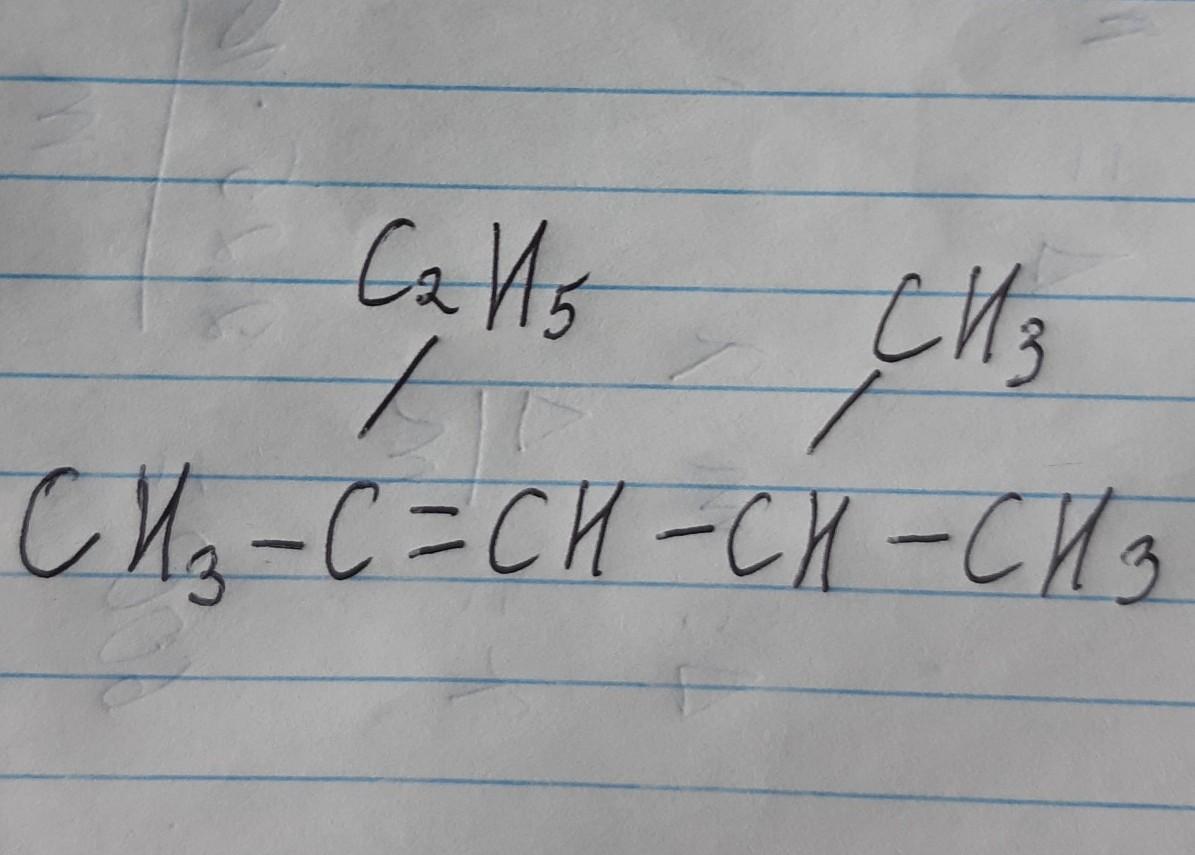 C₂H₅ CH₃
CH₃-C=CH-CH-CH₃